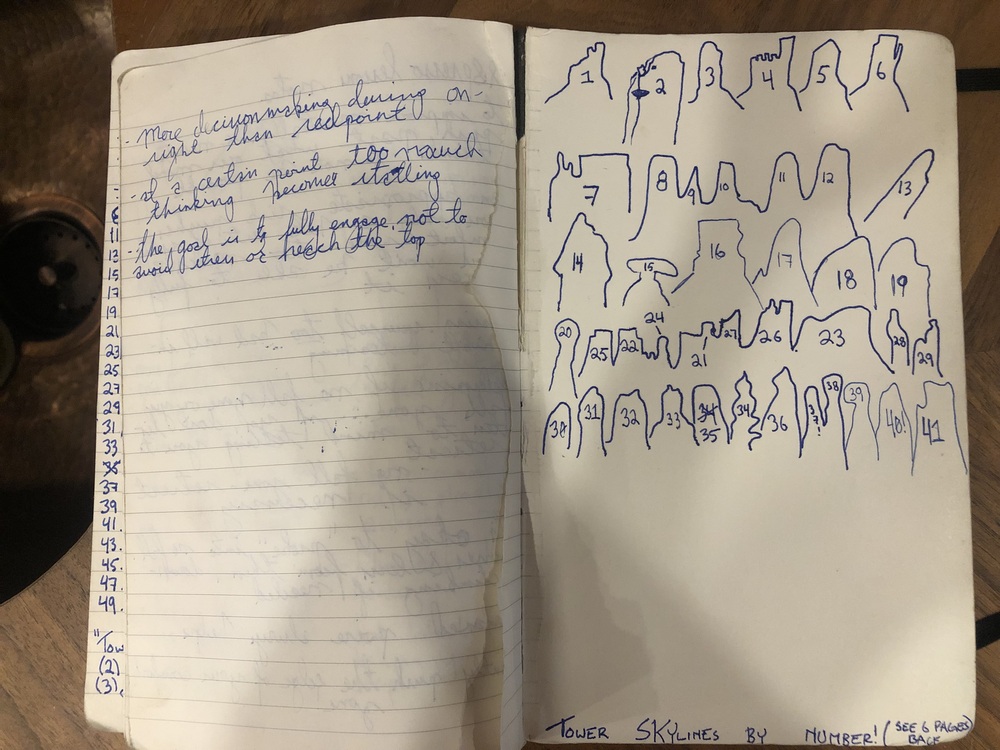 - More decisionmaking during on-
sight than redpoint
- at a certain point too much
thinking becomes
- the goal is to fully engage, not to
avoid stress or reach the top
11
13
15
17
19
21
23
25
27
29
31
33
35
37
39
41.
43.
45.
47.
49.
"Tow
(2)
(3).
1 2 3 4 5 6
7 8 9 10 11 12 13
14 15 16 17 18 19
20 25 22 24 21 27 26 23 28 29
30 31 32 33 34 35 34 36 37! 38 39 40! 41
TOWER SKYLINES BY NUMBER! (SEE 6 PAGES
BACK